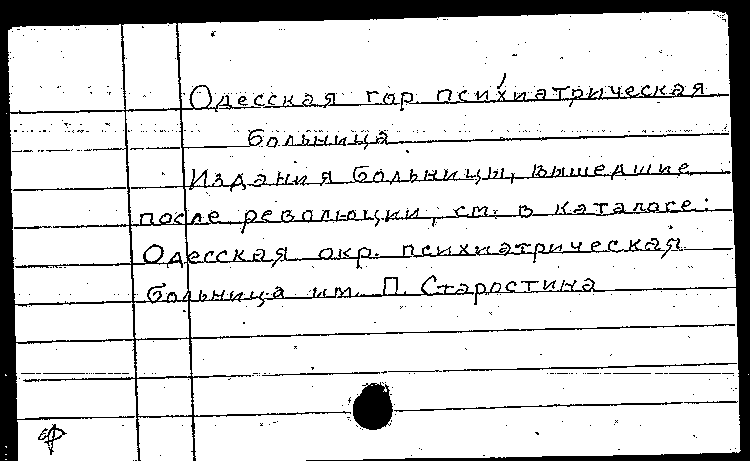 Одесская гор. психиатрическая
больница
Издания больницы, вышедшие
после революции, см. в каталоге:
Одесская окр. психиатрическая
больница им. П. Старостина